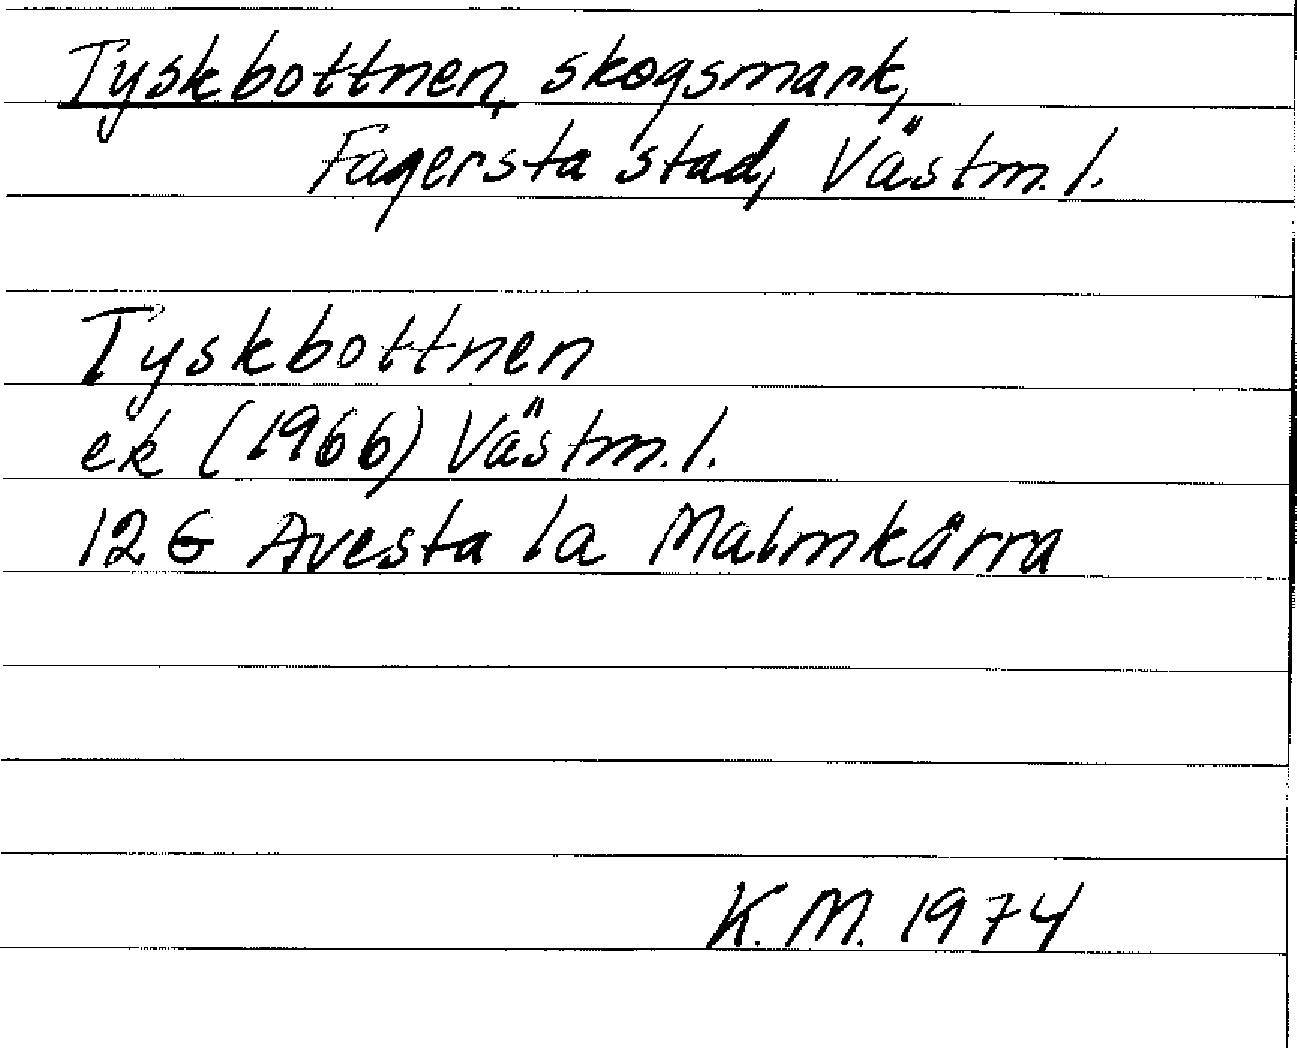 Tyskbottnen, skogsmark,
Fagersta stad, Västm. l.
Tyskbottnen
ek (1966) Västm. l.
12G Avesta 1a Malmkärra
K.M. 1974